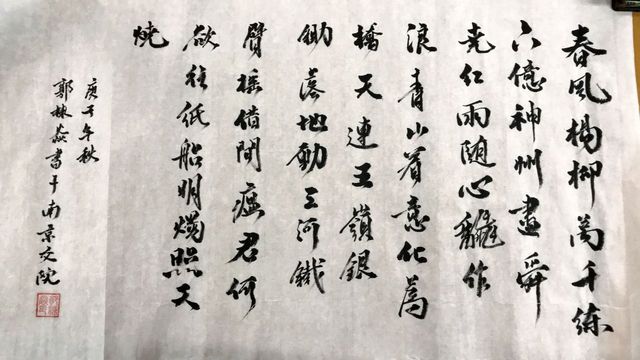 春風楊柳萬千條
六億神州盡舜
堯紅雨随心翻作
浪青山着意化為
橋天連五嶺銀
鋤落地動三河鐵
臂摇借問瘟君何
欲往紙船明燭照天
燒
庚子年秋
郭林焱書于南京文院